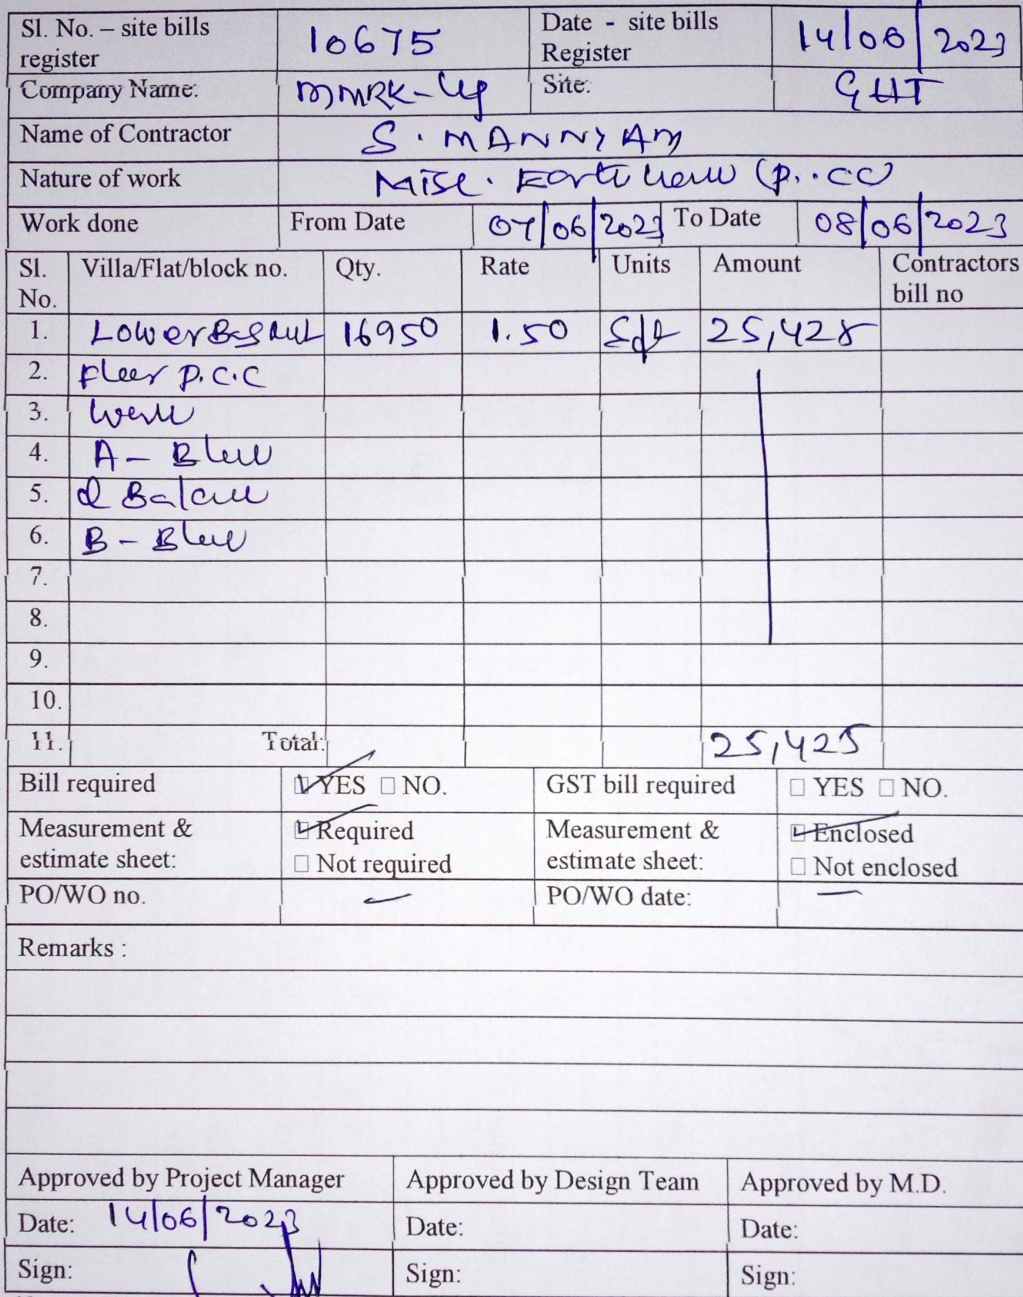 Sl. No. – site bills register 10675 Date - site bills Register 14/06/2023
Company Name: MMRK-Llp Site: GHT
Name of Contractor S. MANNYAM
Nature of work Misc. (P..CC)
Work done From Date 07/06/2023 To Date 08/06/2023
Sl. No. Villa/Flat/block no. Qty. Rate Units Amount Contractors bill no
1. Lower 16950 1.50 Sft 25,425
2. Floor P.C.C
3. Work
4. A – Block
5. & Balance
6. B – Block
7.
8.
9.
10.
11. Total: 25,425
Bill required YES NO. GST bill required YES NO.
Measurement & estimate sheet: Required Not required Measurement & estimate sheet: Enclosed Not enclosed
PO/WO no. — PO/WO date: —
Remarks :
Approved by Project Manager Approved by Design Team Approved by M.D.
Date: 14/06/2023 Date: Date:
Sign: Sign: Sign: